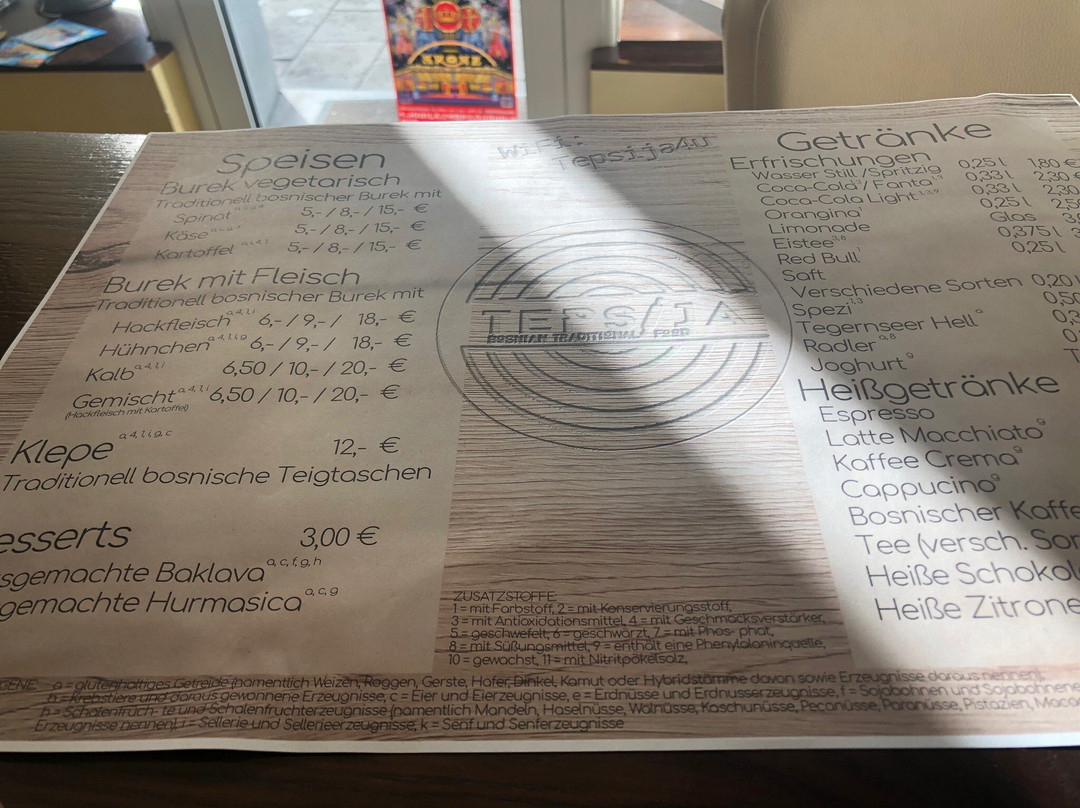 KRONE
Speisen
Burek vegetarisch
Traditionell bosnischer Burek mit
Spinat 5,- / 8,- / 15,- €
Käse 5,- / 8,- / 15,- €
Kartoffel 5,- / 8,- / 15,- €
Burek mit Fleisch
Traditionell bosnischer Burek mit
Hackfleisch a,4,l,i 6,- / 9,- / 18,- €
Hühnchen a,4,l,i,g 6,- / 9,- / 18,- €
Kalb a,4,l,i 6,50 / 10,- / 20,- €
Gemischt a,4,l,i 6,50 / 10,- / 20,- €
(Hackfleisch mit Kartoffel)
Klepe a,4,l,i,g,c 12,- €
Traditionell bosnische Teigtaschen
esserts 3,00 €
sgemachte Baklava a,c,f,g,h
gemachte Hurmasica a,c,g
WiFi:
Tepsija4u
TEPS/JA
BOSNIAN TRADITIONAL FOOD
Getränke
Erfrischungen
Wasser Still /Spritzig 0,25 l 1,80 €
Coca-Cola / Fanta 0,33 l 2,30
Coca-Cola Light 0,33 l 2,30
Orangina 0,25 l 2,50
Limonade Glas
Eistee 0,375 l
Red Bull 0,25 l
Saft
Verschiedene Sorten 0,20
Spezi 1,3
Tegernseer Hell a
Radler a,8
Joghurt 9
Heißgetränke
Espresso
Latte Macchiato 9
Kaffee Crema 9
Cappucino 9
Bosnischer Kaffe
Tee (versch. Sor
Heiße Schokol
Heiße Zitrone
ZUSATZSTOFFE:
1 = mit Farbstoff, 2 = mit Konservierungsstoff,
3 = mit Antioxidationsmittel, 4 = mit Geschmacksverstärker,
5 = geschwefelt, 6 = geschwärzt, 7 = mit Phos- phat,
8 = mit Süßungsmittel, 9 = enthält eine Phenylalaninquelle,
10 = gewachst, 11 = mit Nitritpökelsolz,
GENE: a = glutenhaltiges Getreide (namentlich Weizen, Roggen, Gerste, Hafer, Dinkel, Kamut oder Hybridstämme davon sowie Erzeugnisse daraus nennen),
b = Krebstiere und daraus gewonnene Erzeugnisse, c = Eier und Eierzeugnisse, e = Erdnüsse und Erdnusserzeugnisse, f = Sojabohnen und Sojabohnene
h = Schalenfrüch- te und Schalenfruchterzeugnisse (namentlich Mandeln, Haselnüsse, Walnüsse, Kaschunüsse, Pecanüsse, Paranüsse, Pistazien, Maca
Erzeugnisse nennen), i = Sellerie und Sellerieerzeugnisse, k = Senf und Senferzeugnisse